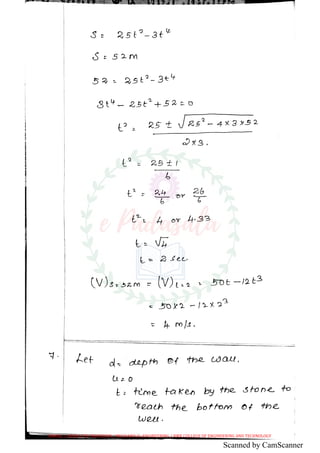 S = 25t² - 3t⁴
S = 52m
52 = 25t² - 3t⁴
3t⁴ - 25t² + 52 = 0
t² = 25 ± √25² - 4×3×52
2×3.
t² = 25 ± 1
6
t² = 24 or 26
6 6
t² = 4 or 4.33
t = √4
t = 2 sec
(V)s=52m = (V)t=2 = 50t - 12t³
= 50×2 - 12×2³
= 4 m/s.
7. Let d = depth of the well.
u = 0
t = time taken by the stone to
reach the bottom of the
well.
e Padasala
COLLEGE OF ENGINEERING AND TECHNOLOGY
Scanned by CamScanner